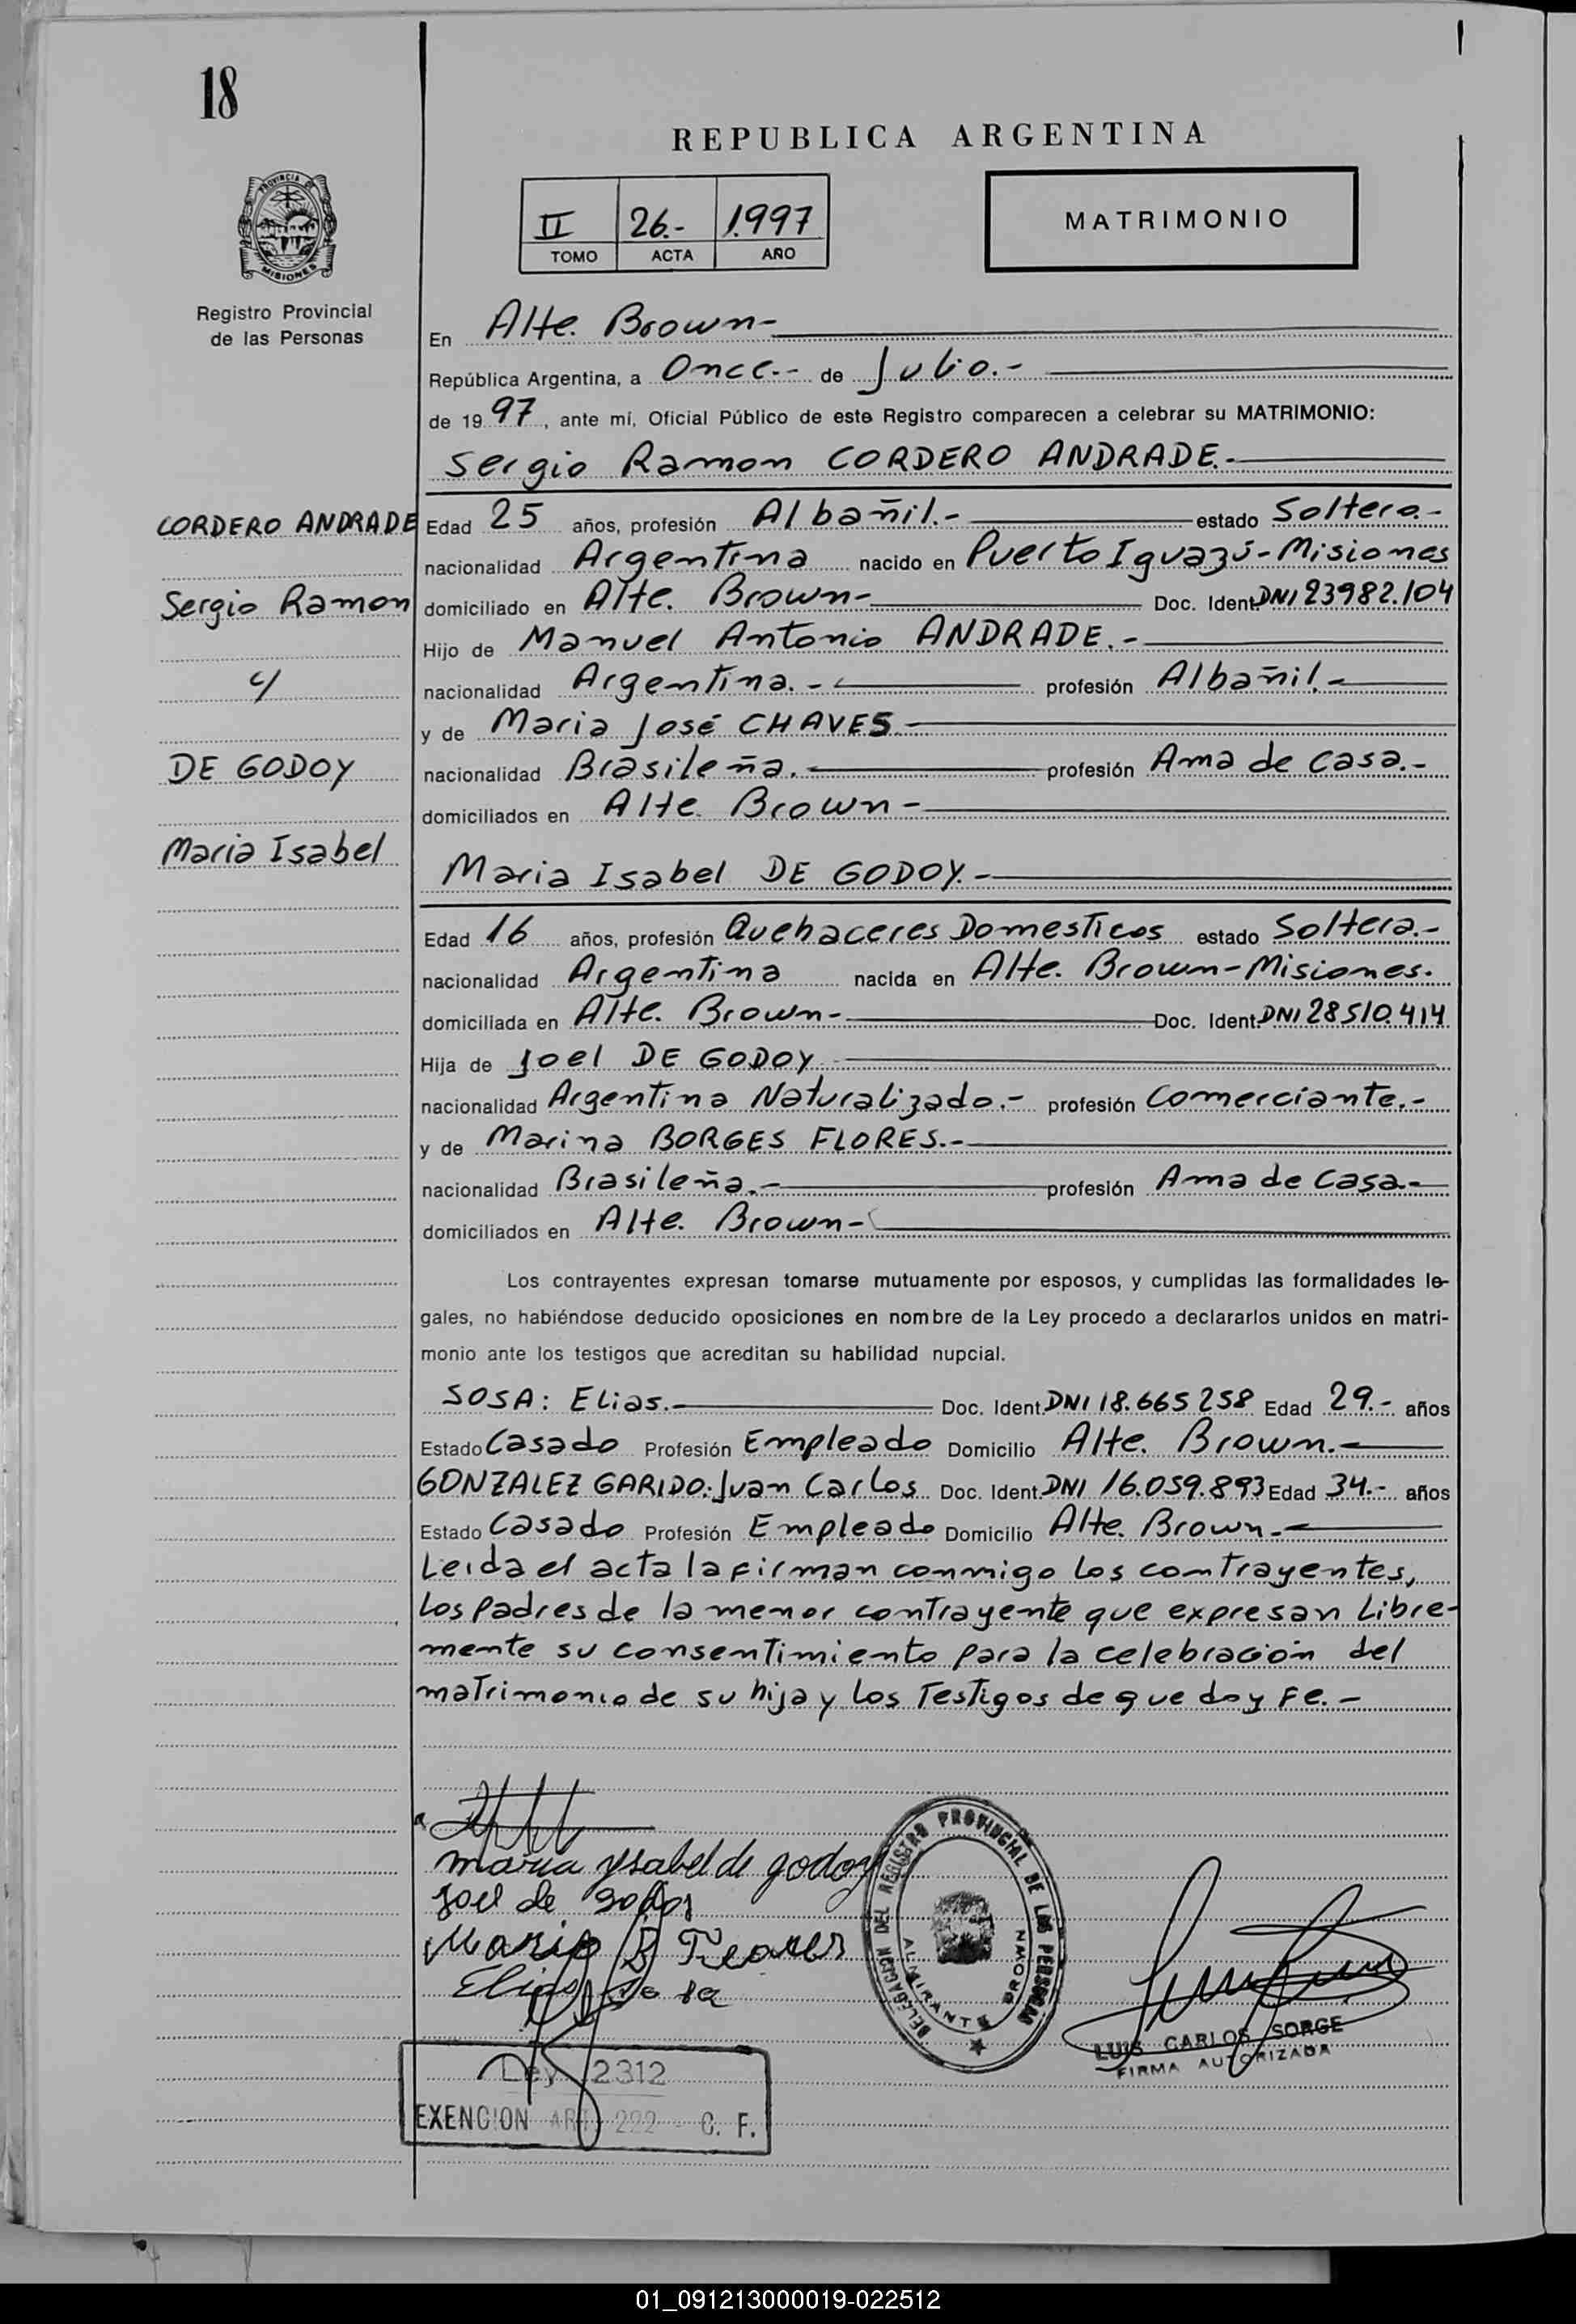 18
REPUBLICA ARGENTINA
II 26.- 1.997
TOMO ACTA AÑO
MATRIMONIO
PROVINCIA DE
MISIONES
Registro Provincial
de las Personas
En Alte. Brown-
República Argentina, a Once.- de Julio.-
de 1997, ante mí, Oficial Público de este Registro comparecen a celebrar su MATRIMONIO:
Sergio Ramon CORDERO ANDRADE.-
CORDERO ANDRADE
Edad 25 años, profesión Albañil.- estado Soltero.-
nacionalidad Argentina nacido en Puerto Iguazú-Misiones
Sergio Ramon
domiciliado en Alte. Brown- Doc. Ident. DNI 23982.104
Hijo de Manuel Antonio ANDRADE.-
c/
nacionalidad Argentina.- profesión Albañil.-
y de Maria José CHAVES-
DE GODOY
nacionalidad Brasileña.- profesión Ama de casa.-
domiciliados en Alte. Brown-
Maria Isabel
Maria Isabel DE GODOY.-
Edad 16 años, profesión Quehaceres Domesticos estado Soltera.-
nacionalidad Argentina nacida en Alte. Brown-Misiones.
domiciliada en Alte. Brown- Doc. Ident. DNI 28510.414
Hija de Joel DE GODOY.-
nacionalidad Argentina Naturalizado.- profesión Comerciante.-
y de Marina BORGES FLORES.-
nacionalidad Brasileña.- profesión Ama de Casa.-
domiciliados en Alte. Brown-
Los contrayentes expresan tomarse mutuamente por esposos, y cumplidas las formalidades le-
gales, no habiéndose deducido oposiciones en nombre de la Ley procedo a declararlos unidos en matri-
monio ante los testigos que acreditan su habilidad nupcial.
SOSA: Elias.- Doc. Ident. DNI 18.665258 Edad 29.- años
Estado Casado Profesión Empleado Domicilio Alte. Brown.-
GONZALEZ GARIDO: Juan Carlos Doc. Ident. DNI 16.059.893 Edad 34.- años
Estado Casado Profesión Empleado Domicilio Alte. Brown.-
Leida el acta la firman conmigo los contrayentes,
los padres de la menor contrayente que expresan libre-
mente su consentimiento para la celebración del
matrimonio de su hija y los Testigos de que doy Fe.-
maria ysabel de godoy
Joel de godoy
Elias Sosa
DELEGACION DEL REGISTRO PROVINCIAL DE LAS PERSONAS
ALMIRANTE BROWN
LUIS CARLOS SORGE
FIRMA AUTORIZADA
Ley 2312
EXENCION ART 222 - C. F.
01_091213000019-022512